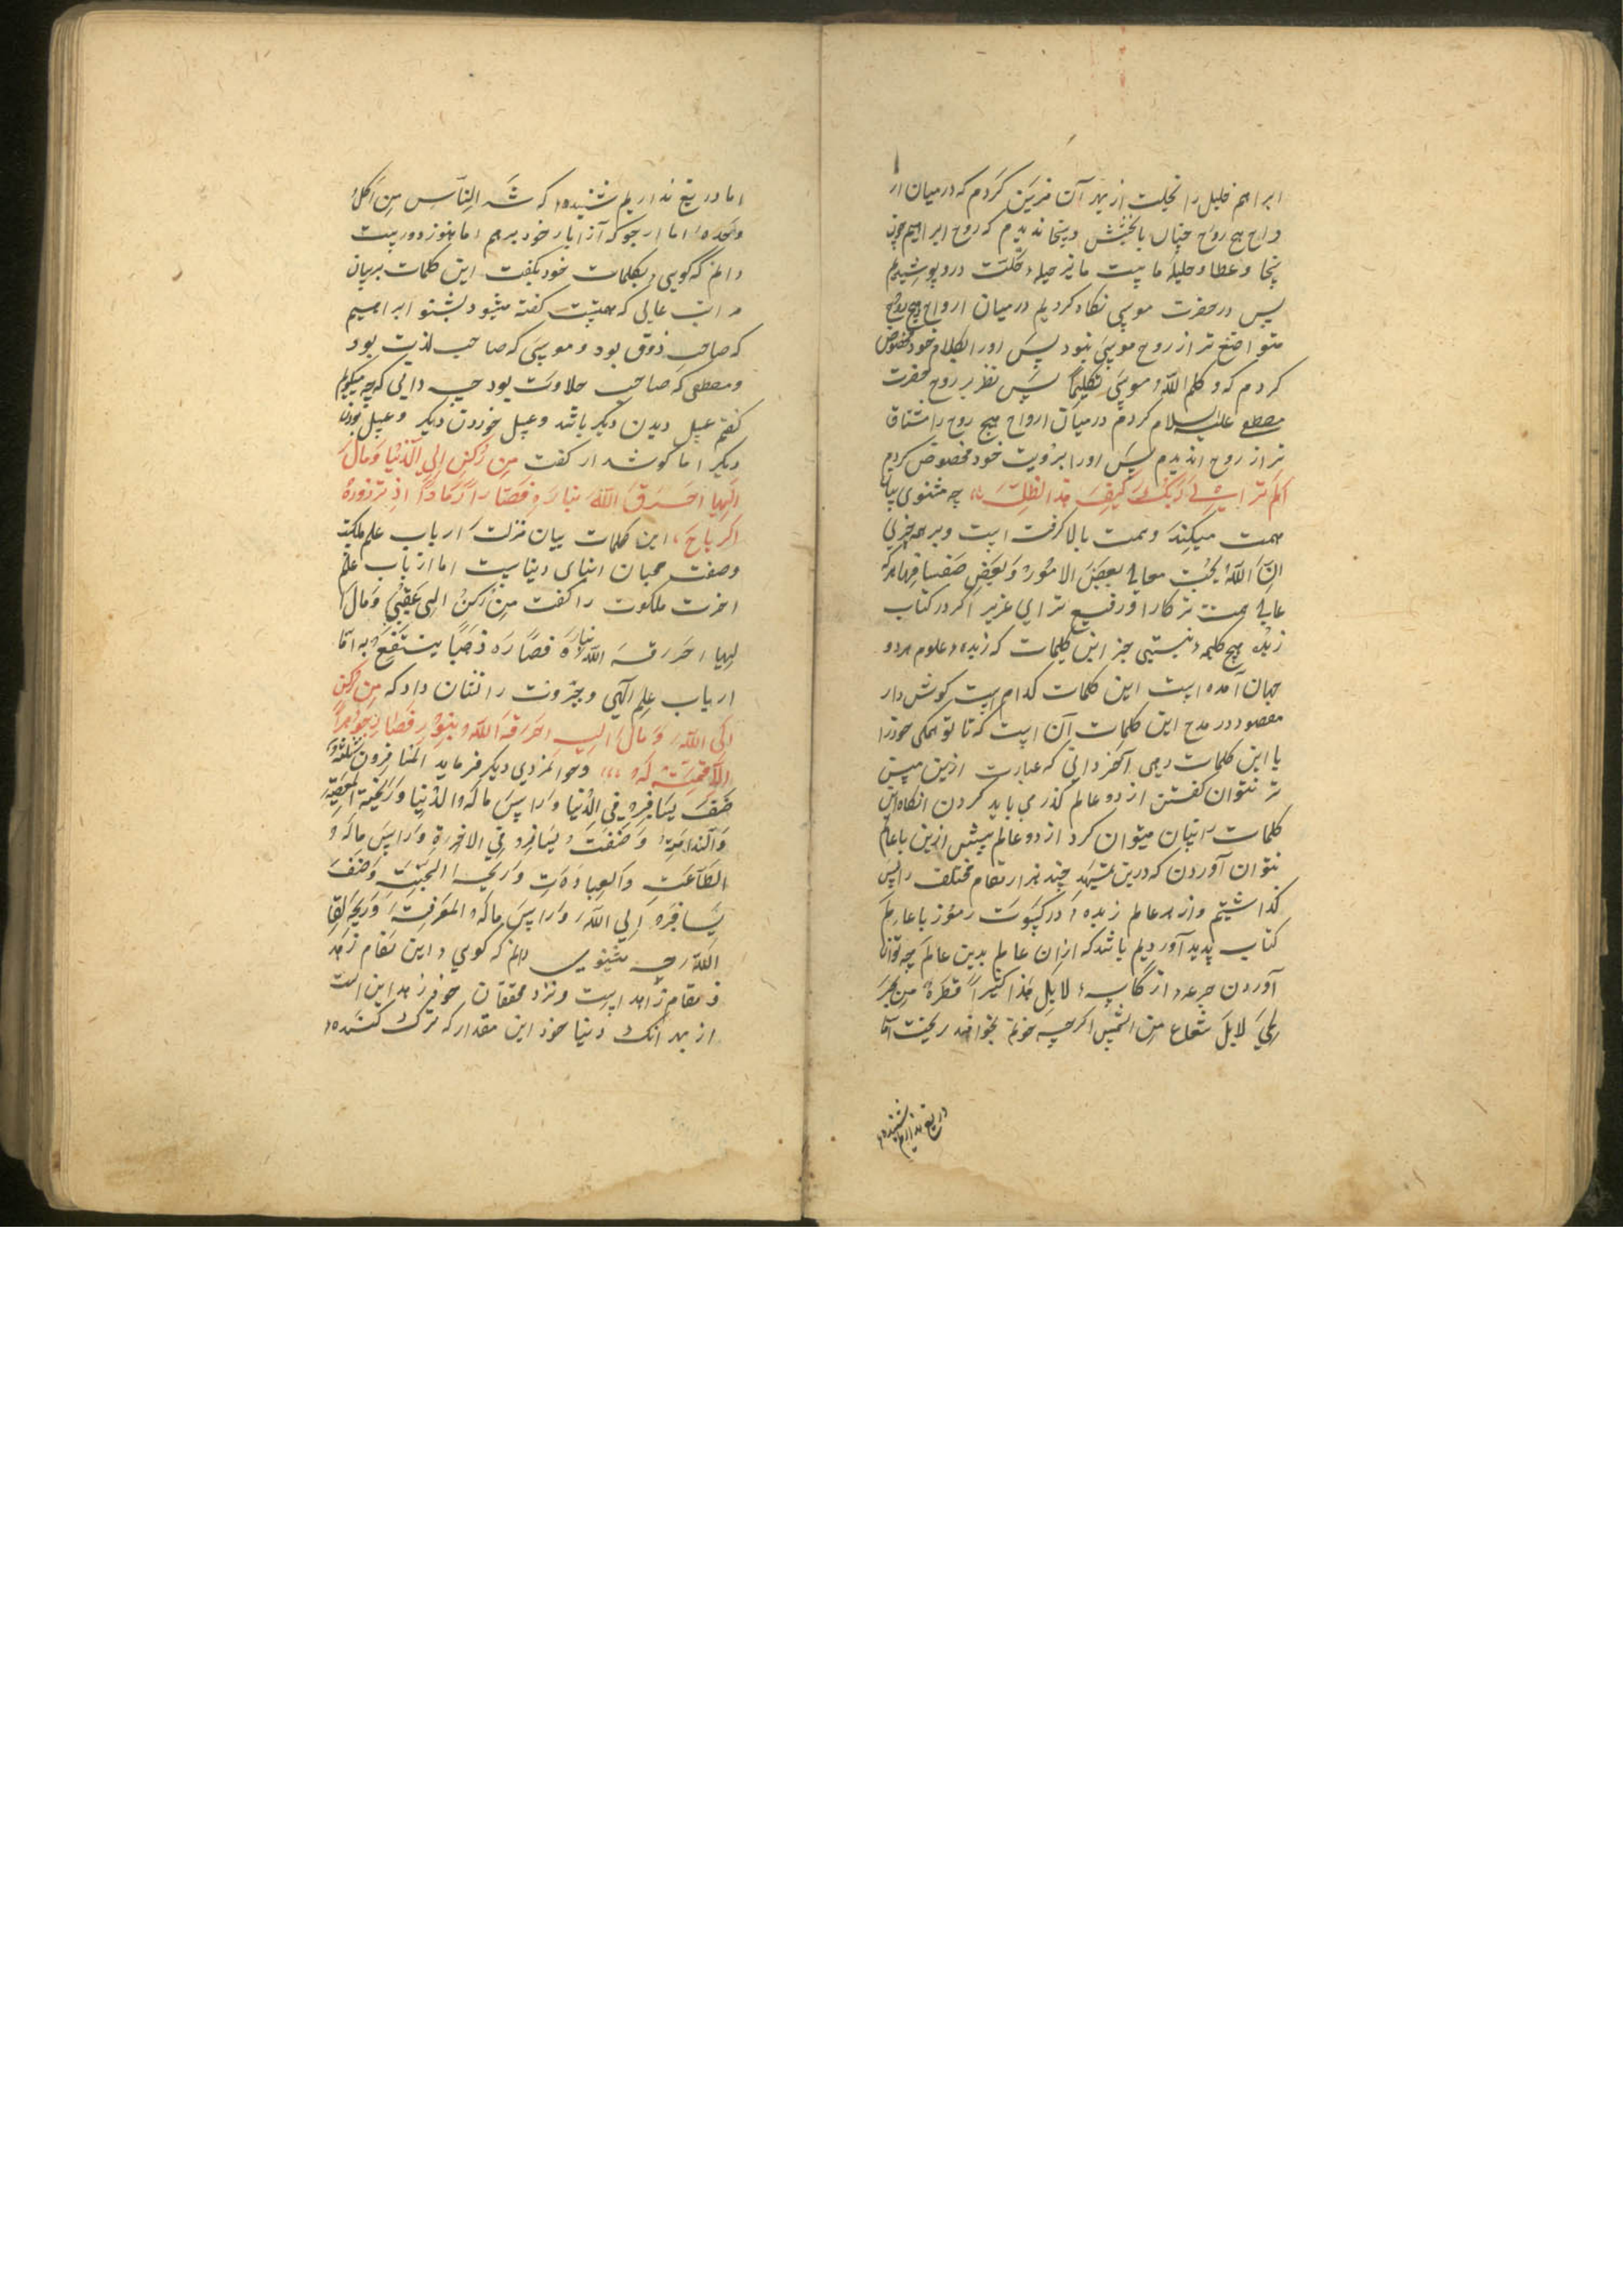 ابراهم خلیل را نخلت از بهر آن مزین کردم که درمیان ار
واح هیچ روح چنان بابخشش و سخا ندیدم که روح ابراهیم چون
سخا و عطا و حلیهٔ ماست ما نیز حیلهٔ خلت درو پوشیدیم
پس در حضرت موسی نکاه کردیم درمیان ارواح هیچ روح
متواضع تر از روح موسی نبود پس اورا بکلام خود مخصوص
کردم که و کلم الله موسی تکلیمًا پس نظر بر روح حضرت
مصطفی علیه السلام کردم درمیان ارواح هیچ روح را مشتاق
تر از روح ا ندیدم پس اورا برویت خود مخصوص کردم
الم تر الی ربک کیف مد الظل چه مشنوی بیان
همت میکند و همت بالا کرفت است و بر همه چیزی
ان الله یحب معالی بعض الامور و یبغض سفسافها هرکه
عالی همت تر کار او رفیع تر ای عزیز اکر در کتاب
زبده هیچ کلیمه نیستی جز این کلیمات که زبده علوم هردو
جهان آمده است این کلمات کدام است کوش دار
مقصود در مدح این کلمات آن است که تا تو همکی خودرا
با این کلمات دهی آنکه دانی که عبارت ازین بیش
تر نتوان کفتن از دو عالم کذر می باید کردن انکاه این
کلمات را بیان میتوان کرد از دو عالم بیش ازین با عالم
نتوان آوردن که درین تمهید چند هزار مقام مختلف را پس
کذاشتیم و از هر عالم زبده در کسوت رموز با عالم
کتاب پدید آوردیم باشد که ازان عالم بدین عالم چه توان
آوردن جرعه از کاسه لا بل هذا کثیرًا قطرة من بحر
لجی لا بل شعاع من الشمس اکرچه خونم بخواهند ریخت اما
دریغ نداریم شنیده
اما دریغ نداریم شنیده که شر الناس من اکل
وحده اما ارجو که آنرا بار خود برهم اما هنوز دور است
دانم که کویی بکلمات خود بکفت این کلمات بر بیان
مراتب عالی که هست کفته میشود بشنو ابراهیم
که صاحب ذوق بود و موسی که صاحب لذت بود
ومصطفی که صاحب حلاوت بود چه دانی که چه میکویم
کفتم عسل دیدن دیکر باشد و عسل خوردن دیکر و عسل بودن
دیکر اما کوش دار کفت من رکن الی الدنیا و مال
الیها احرق الله بناره فصار رمادًا اذ تذروه
الریاح این کلمات بیان منزلت ارباب علم ملکیت
وصفت محبان ابنای دنیاست اما ارباب علم
اخرت ملکوت را کفت من رکن الی عقبی و مال
الیها احرقه الله بناره فصار ذهبًا ینتفع به اما
ارباب علم الهی وجبروت را نشان داد که من رکن
الی الله و مال الیه احرقه الله بنوره فصار جوهرًا
لا قیمة له وجوانمردی دیکر فرماید المسافرون ثلثة
صنف یسافر فی الدنیا وراس ماله الدنیا وربحه المعصیة
والندامة و صنف یسافر فی الاخرة وراس ماله
الطاعت والعبادت وربحه الجنة وصنف
یسافر الی الله وراس ماله المعرفة وربحه لقا
الله چه مشنوی دانم که کویی این مقام زاهد
ومقام زاهد است ونزد محققان خود زهد این است
از بهر آنک دنیا خود این مقدار که ترک کننده